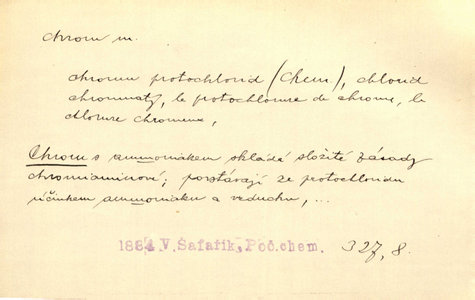 chrom m.
chromu protochlorid (Chem.), chlorid
chromnatý, le protochlorure de chrome, le
chlorure chromeux,
Chrom s ammoniakem skládá složité zásady
chromiaminové; povstávají ze protochloridu
účinkem ammoniaku a vzduchu, ...
1884 V. Šafařík, Poč. chem. 327, 8.